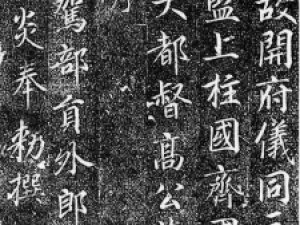 故開府儀同三
監上柱國齊國
大都督髙公
駕部貟外郎
炎奉勑撰